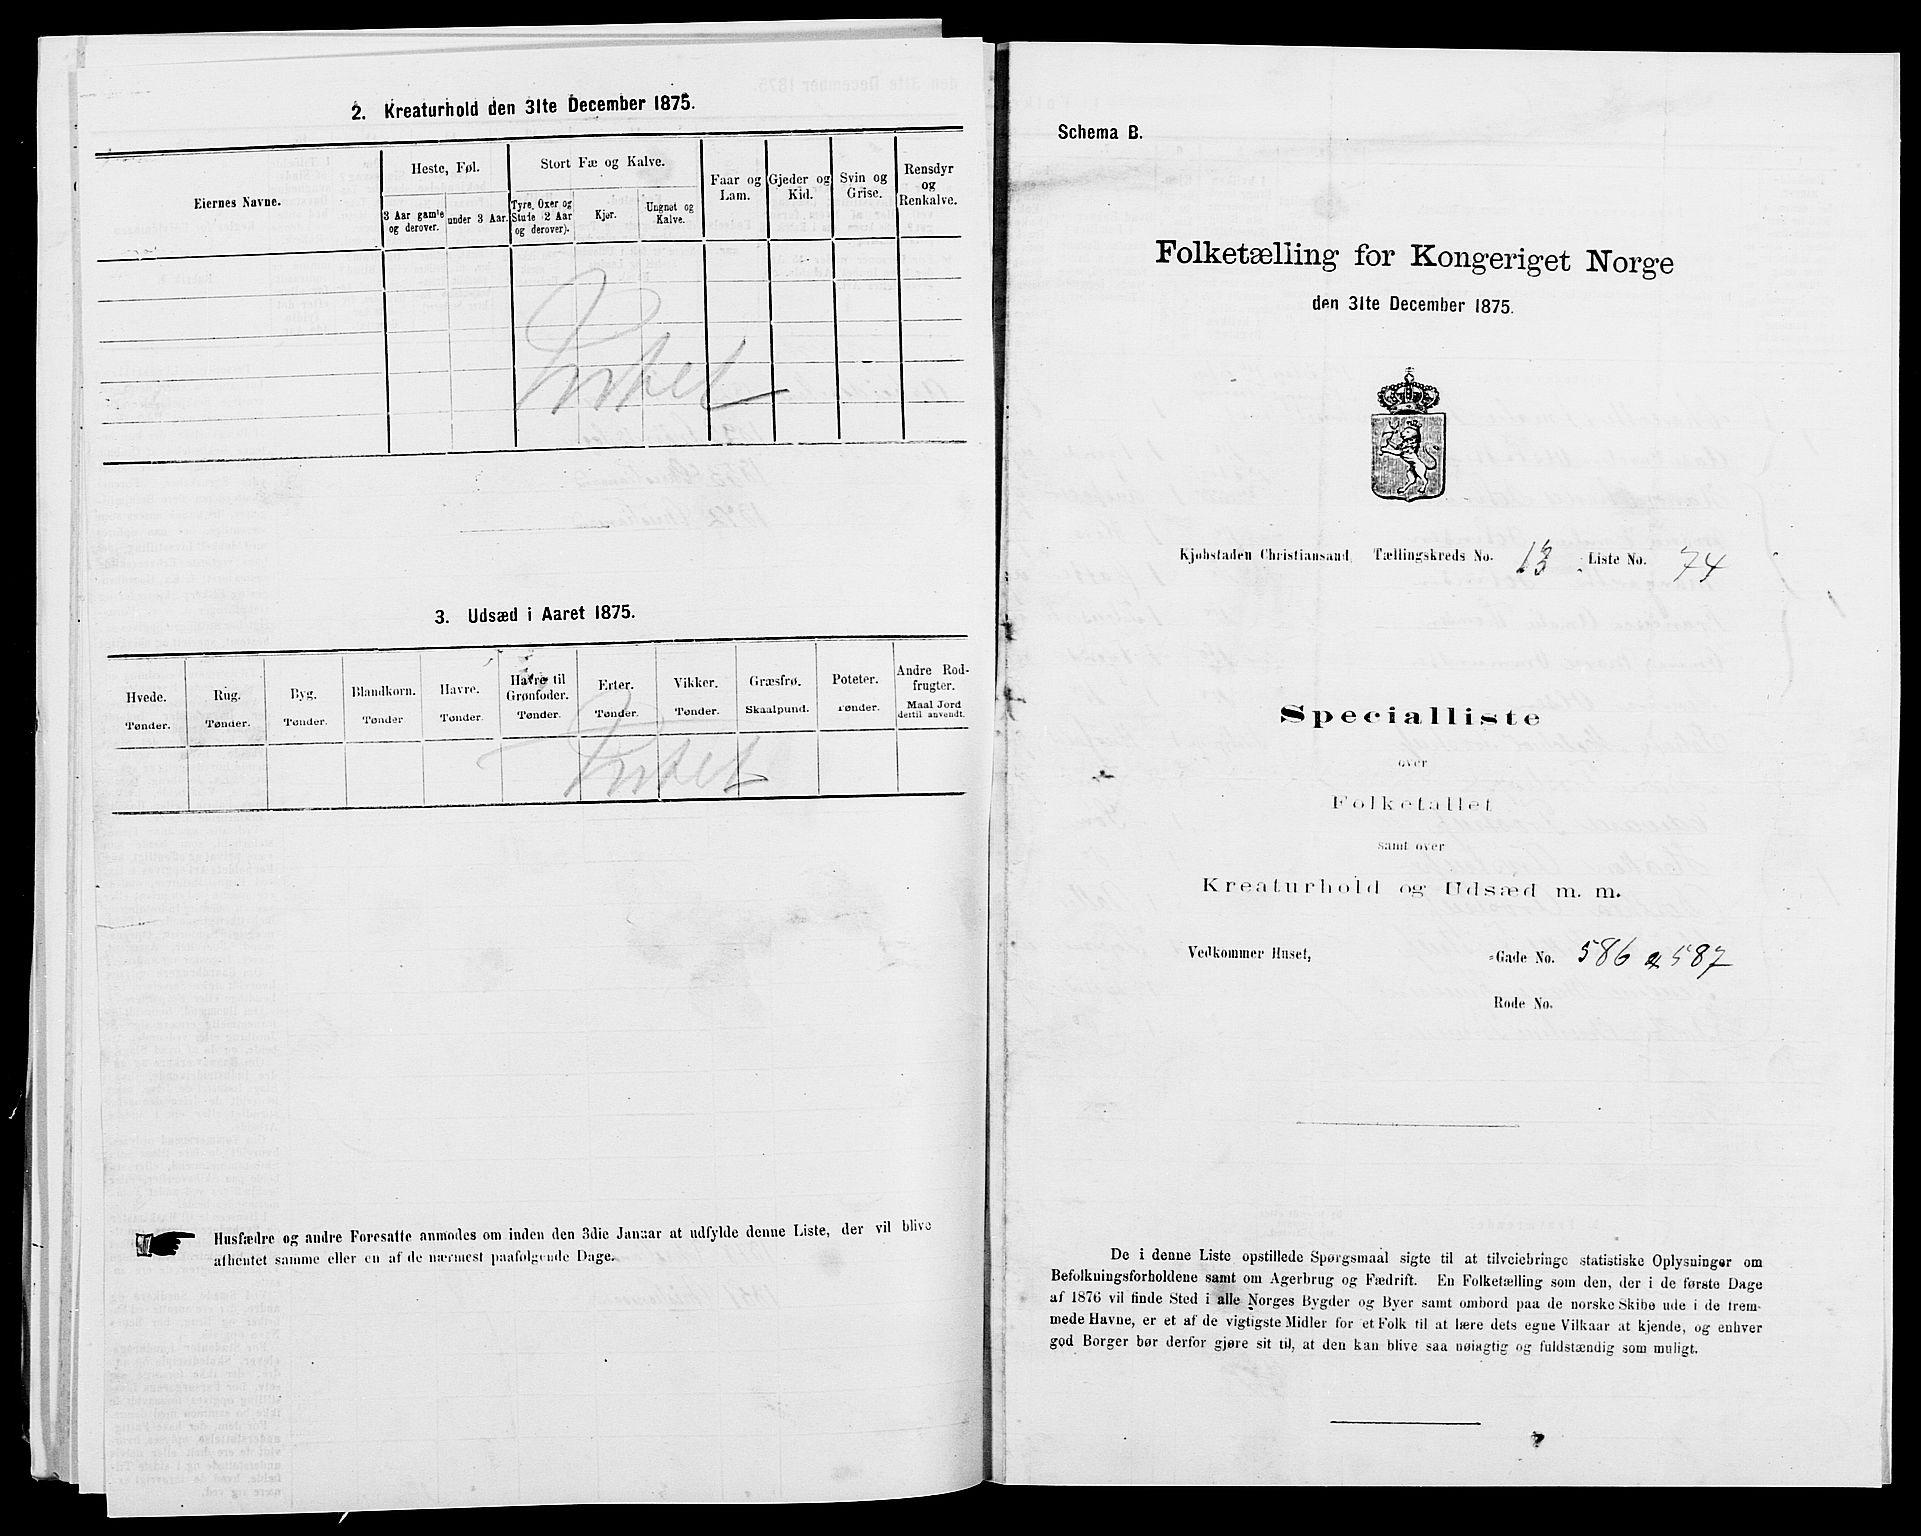 2. Kreaturhold den 31te December 1875.
Eiernes Navne.
Heste, Føl.
3 Aar gamle og derover.
under 3 Aar.
Stort Fæ og Kalve.
Tyre, Oxer og Stude (2 Aar og derover).
Kjør.
Ungnøt og Kalve.
Faar og Lam.
Gjeder og Kid.
Svin og Grise.
Rensdyr og Renkalve.
Intet
3. Udsæd i Aaret 1875.
Hvede. Tønder.
Rug. Tønder.
Byg. Tønder.
Blandkorn. Tønder
Havre. Tønder.
Havre til Grønfoder. Tønder.
Erter. Tønder.
Vikker. Tønder.
Græsfrø. Skaalpund.
Poteter. Tønder.
Andre Rodfrugter. Maal Jord dertil anvendt.
Intet
Husfædre og andre Foresatte anmodes om inden den 3die Januar at udfylde denne Liste, der vil blive
afhentet samme eller en af de nærmest paafølgende Dage.
Schema B.
Folketælling for Kongeriget Norge
den 31te December 1875.
Kjøbstaden Christiansand, Tællingskreds No. 13. Liste No. 74
Specialliste
over
Folketallet
samt over
Kreaturhold og Udsæd m. m.
Vedkommer Huset, -Gade No. 586 & 587
Rode No.
De i denne Liste opstillede Spørgsmaal sigte til at tilveiebringe statistiske Oplysninger om
Befolkningsforholdene samt om Agerbrug og Fædrift. En Folketælling som den, der i de første Dage
af 1876 vil finde Sted i alle Norges Bygder og Byer samt ombord paa de norske Skibe ude i de frem-
mede Havne, er et af de vigtigste Midler for et Folk til at lære dets egne Vilkaar at kjende, og enhver
god Borger bør derfor gjøre sit til, at den kan blive saa nøiagtig og fuldstændig som muligt.